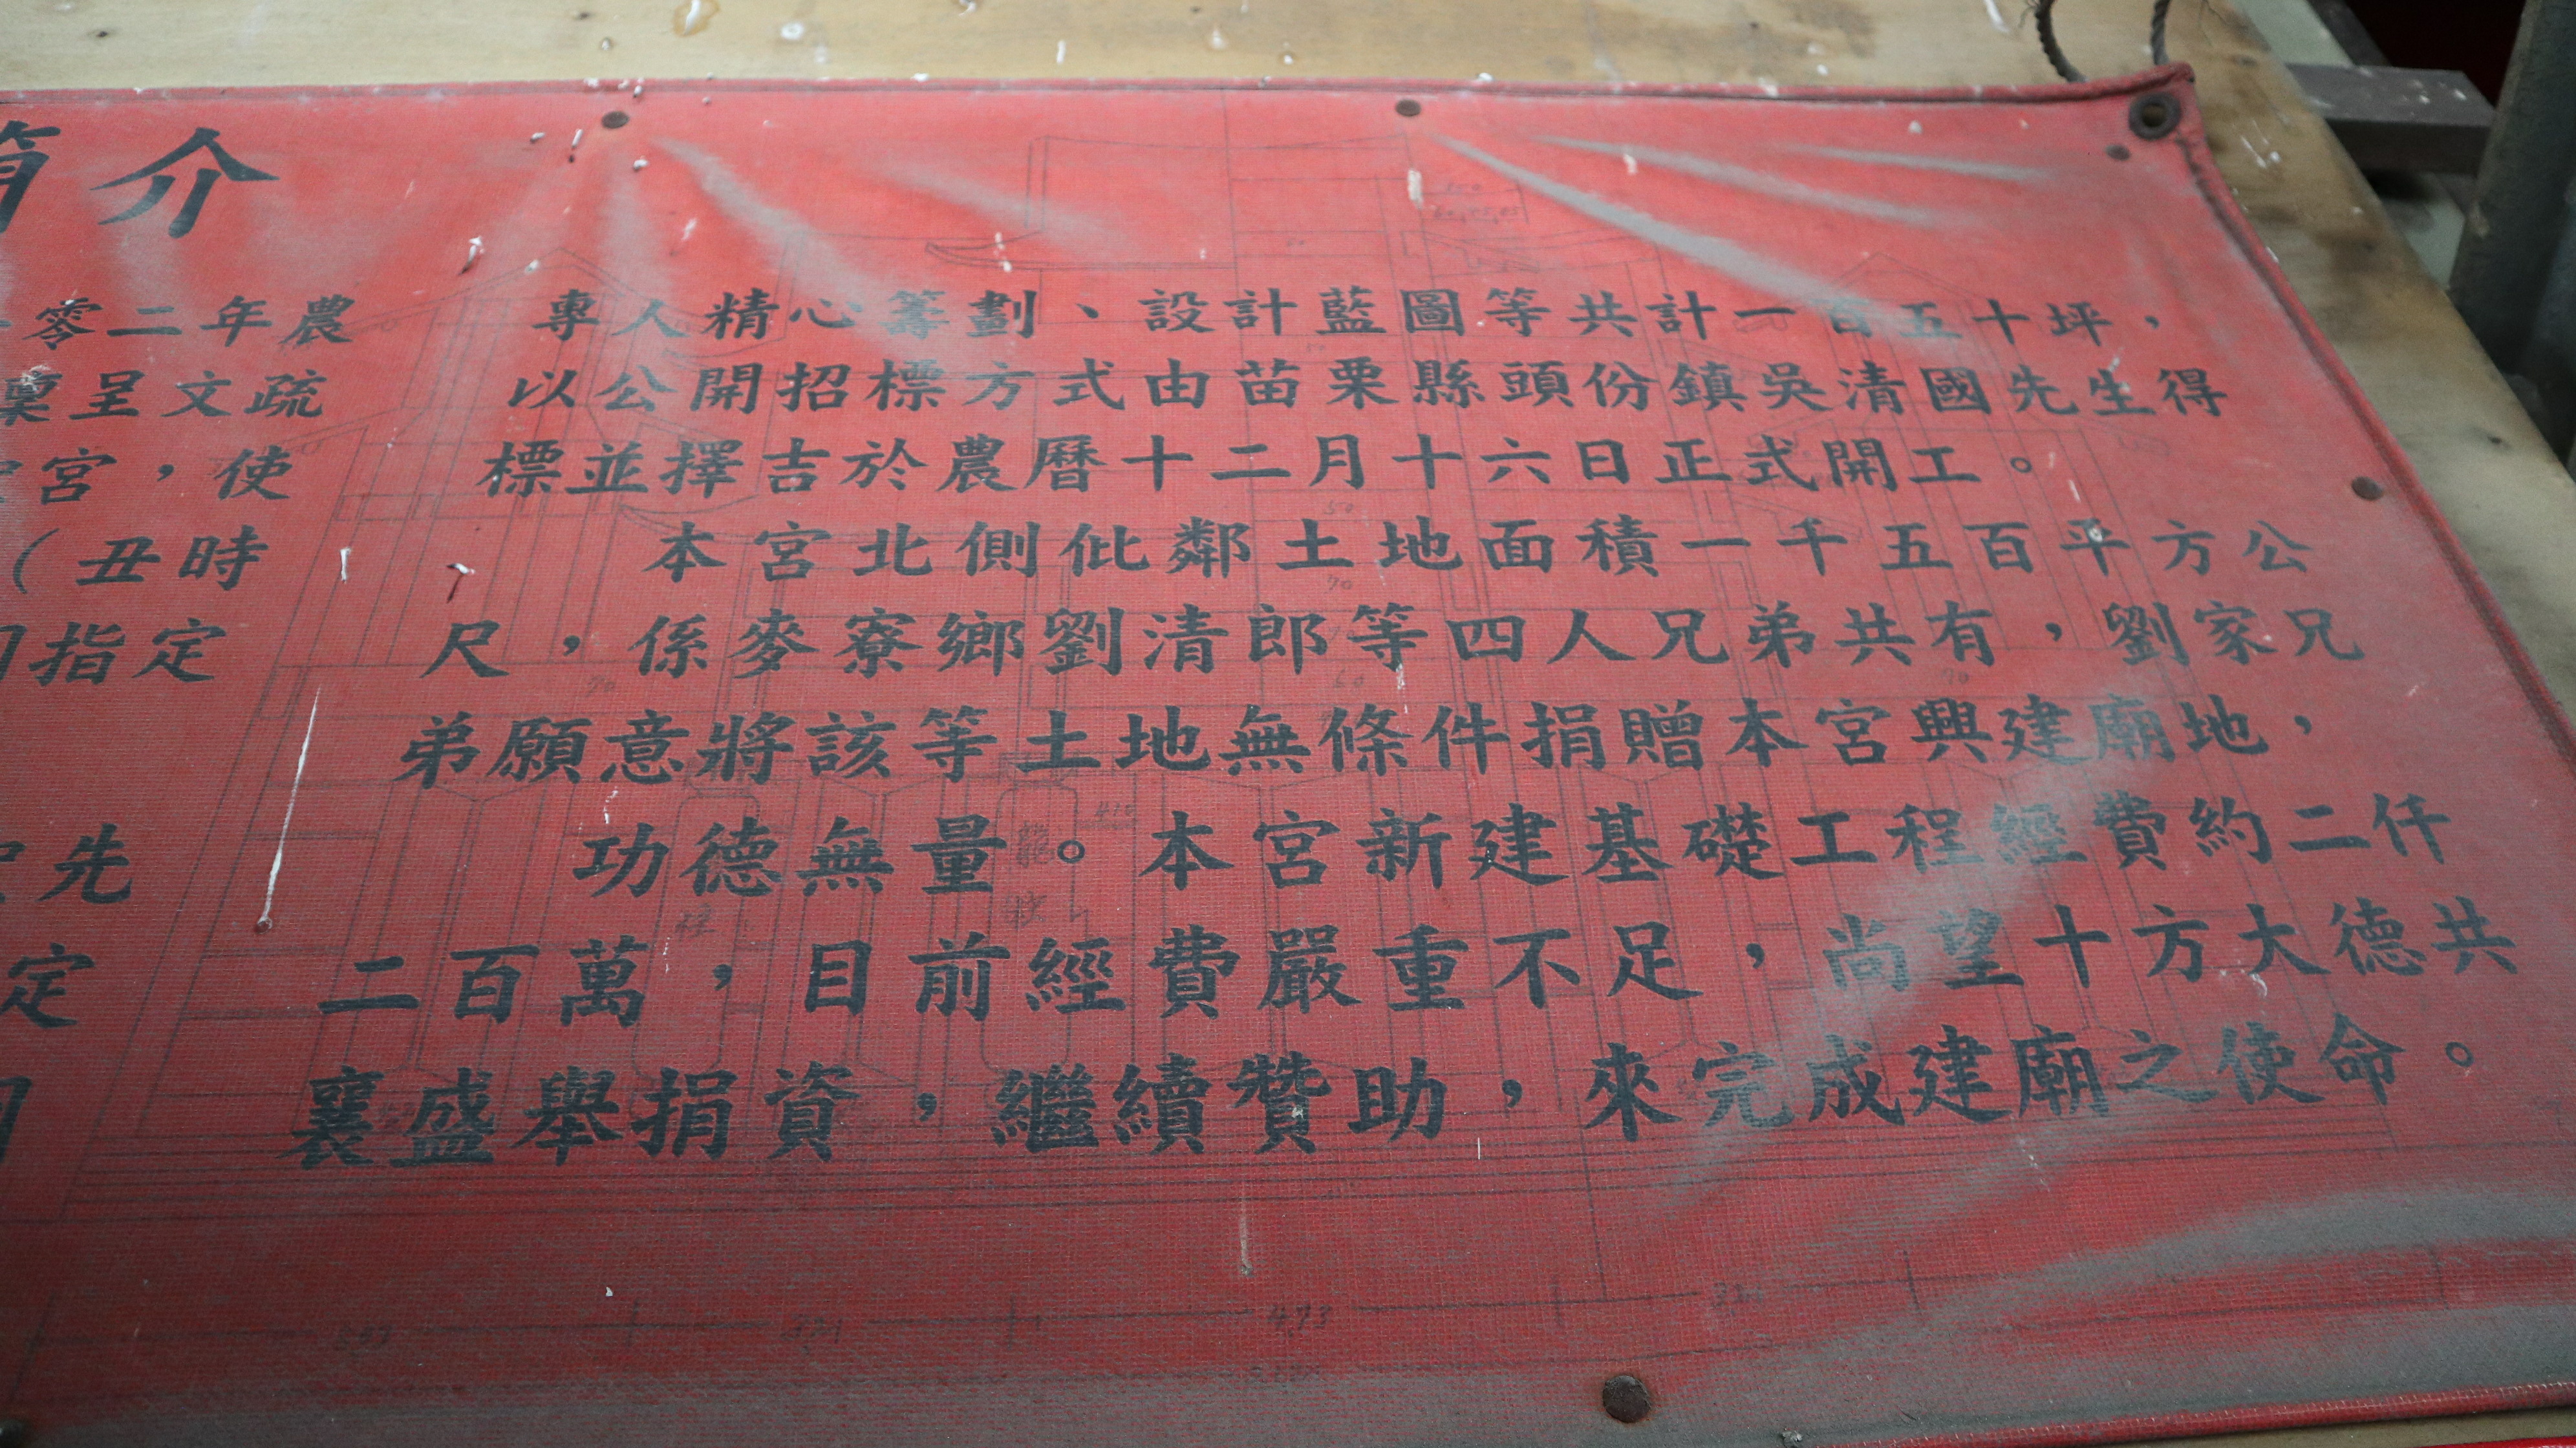 簡介
零二年農
稟呈文疏
宮，使
（丑時
指定
先
定
專人精心籌劃、設計藍圖等共計一百五十坪，
以公開招標方式由苗栗縣頭份鎮吳清國先生得
標並擇吉於農曆十二月十六日正式開工。
本宮北側仳鄰土地面積一千五百平方公
尺，係麥寮鄉劉清郎等四人兄弟共有，劉家兄
弟願意將該等土地無條件捐贈本宮興建廟地，
功德無量。本宮新建基礎工程經費約二仟
二百萬，目前經費嚴重不足，尚望十方大德共
襄盛舉捐資，繼續贊助，來完成建廟之使命。
473